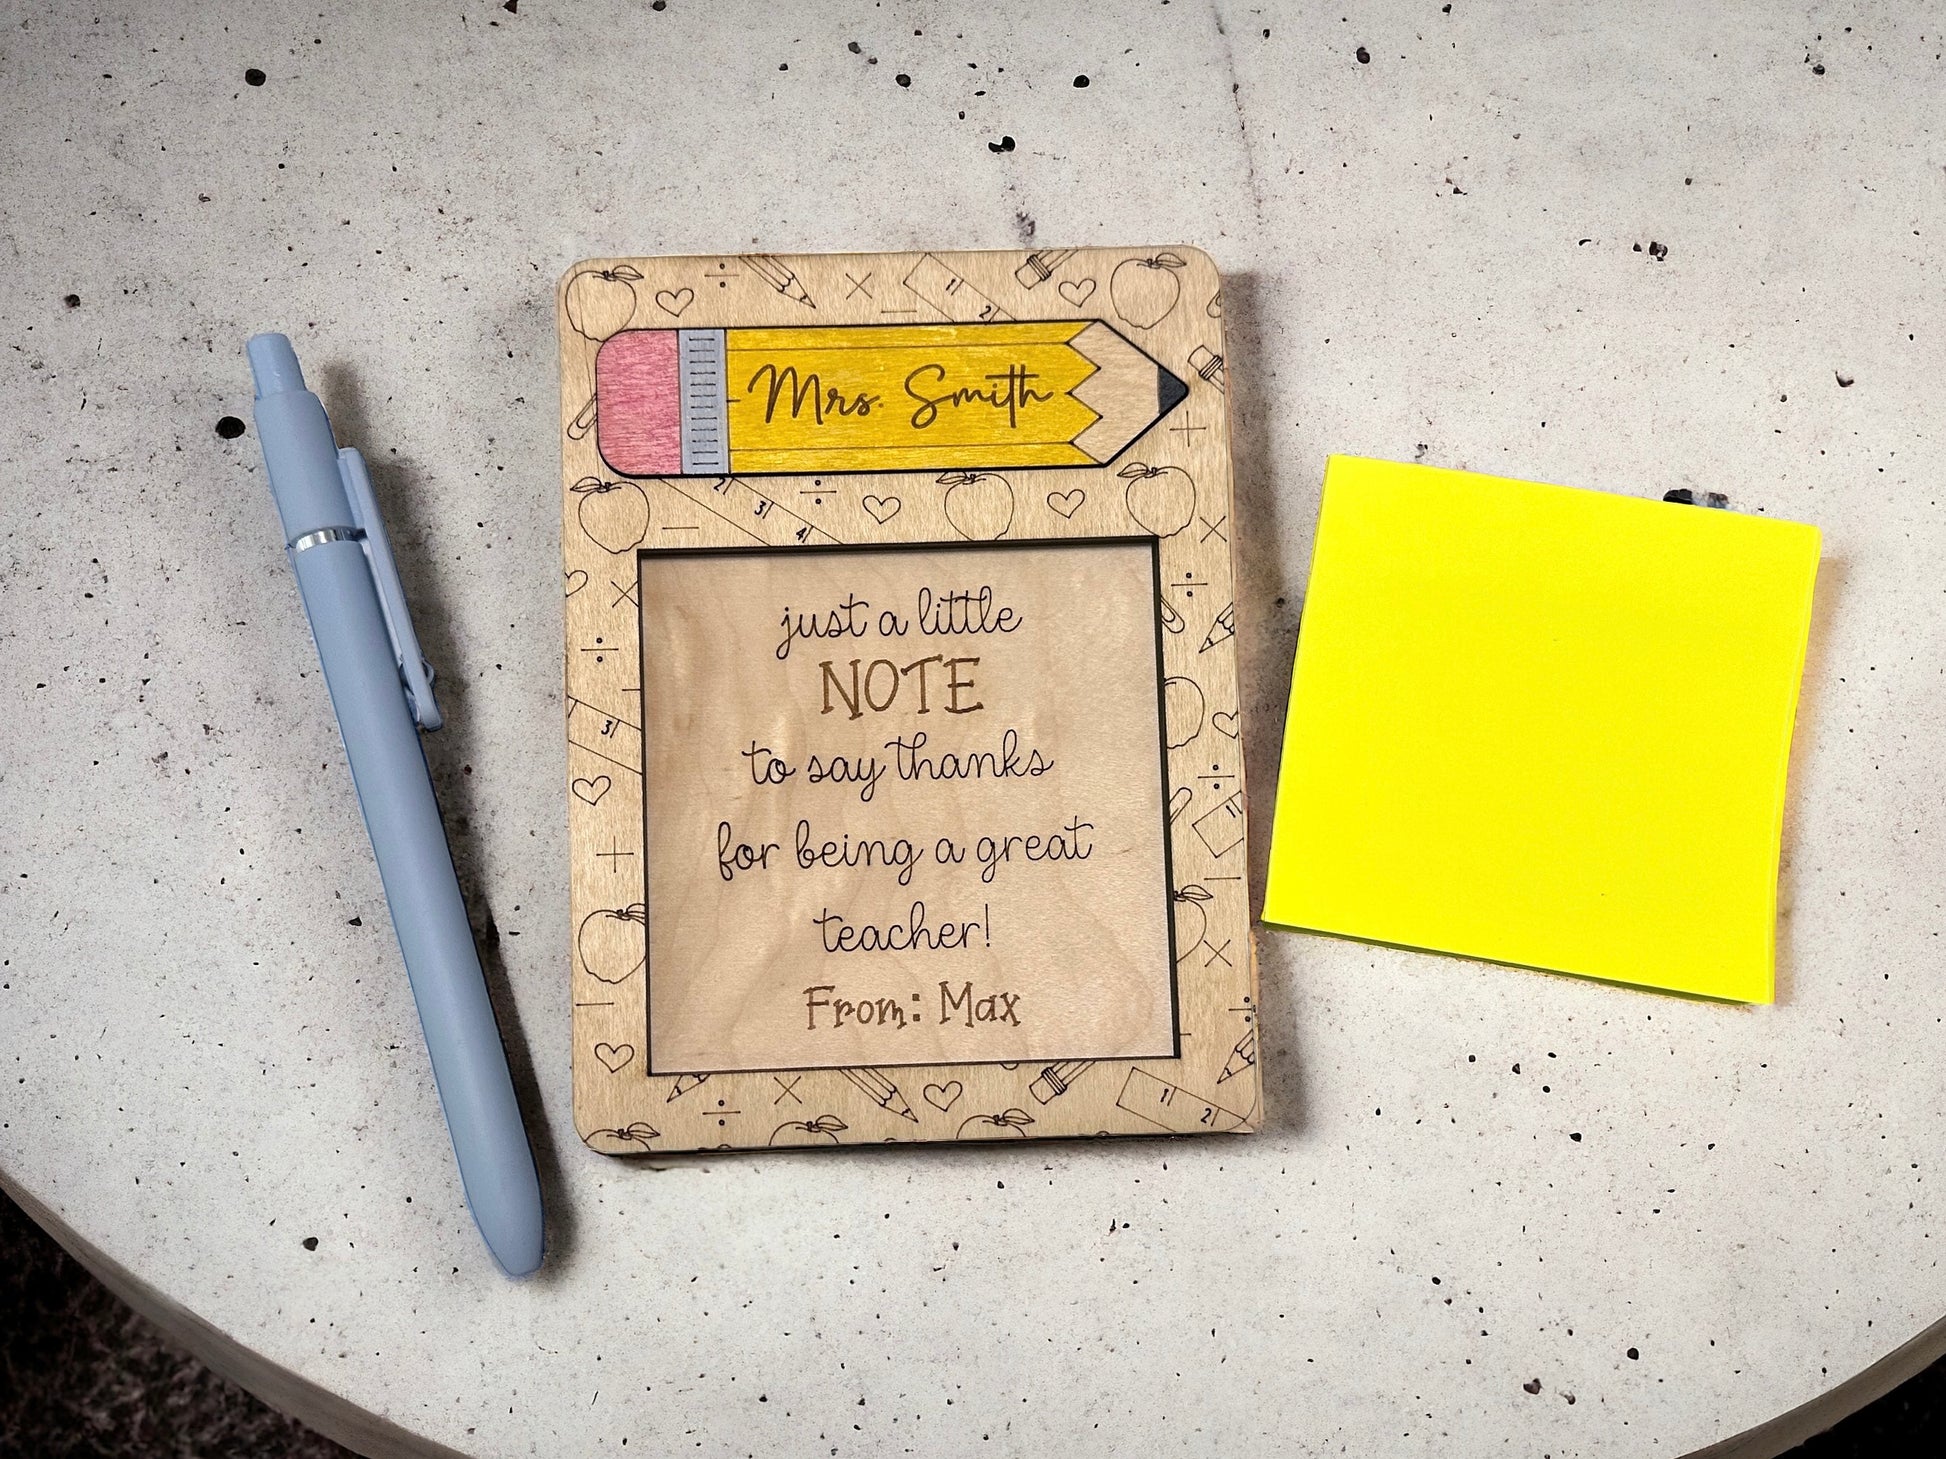 1 2
Mrs. Smith
2 3 4
just a little
NOTE
to say thanks
3
for being a great
teacher!
From: Max
1 2